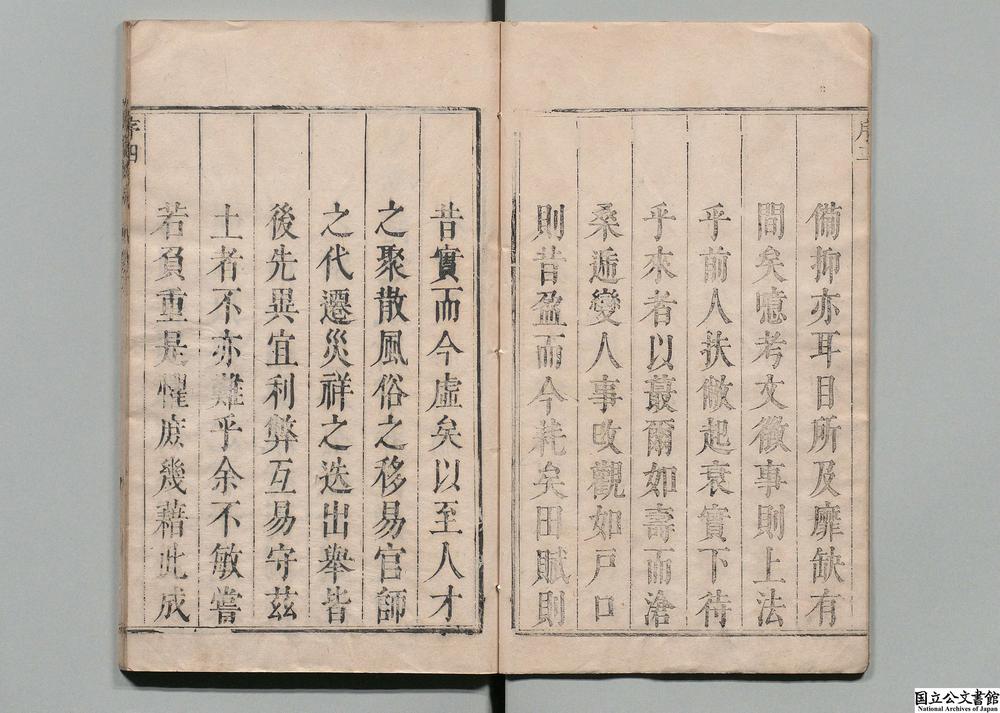 備抑亦耳目所及靡缺有
間矣噫考文徵事則上法
乎前人扶敝起衰實下待
乎來者以蕞爾如壽而滄
桑遞變人事改觀如戶口
則昔盈而今耗矣田賦則
昔實而今虛矣以至人才
之聚散風俗之移易官師
之代遷災祥之迭出舉皆
後先異宜利弊互易守茲
土者不亦難乎余不敏嘗
若負重是懼庶幾藉此成
序四
国立公文書館
National Archives of Japan